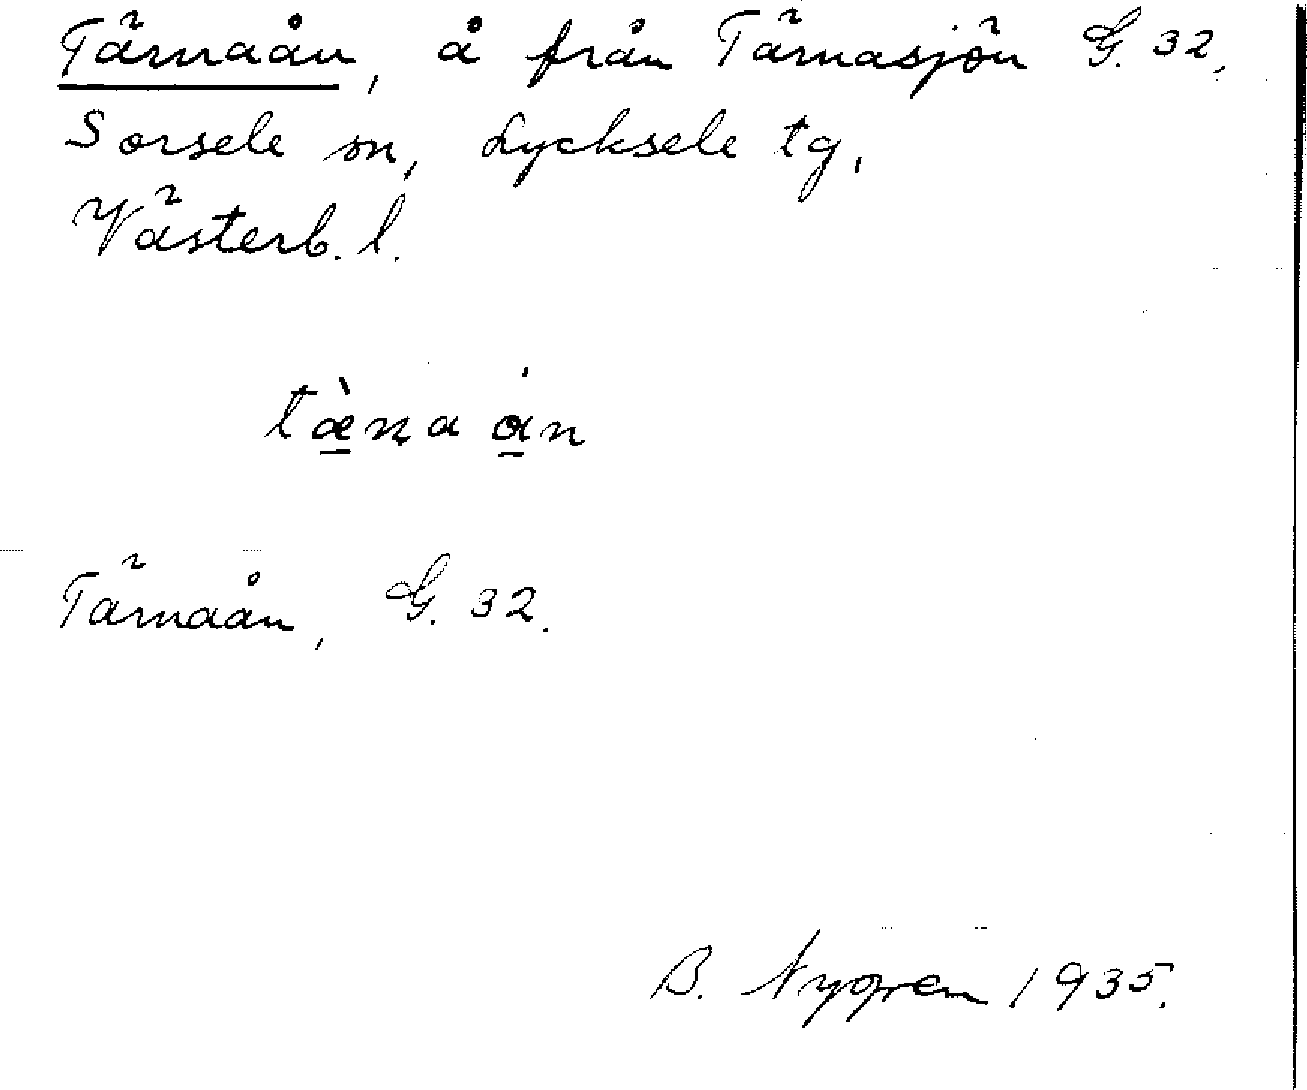 Tärnaån, å från Tärnasjön G. 32,
Sorsele sn, Lycksele tg,
Västerb. l.
tæ̀ṇa ån
Tärnaån, G. 32.
B. Nygren 1935.